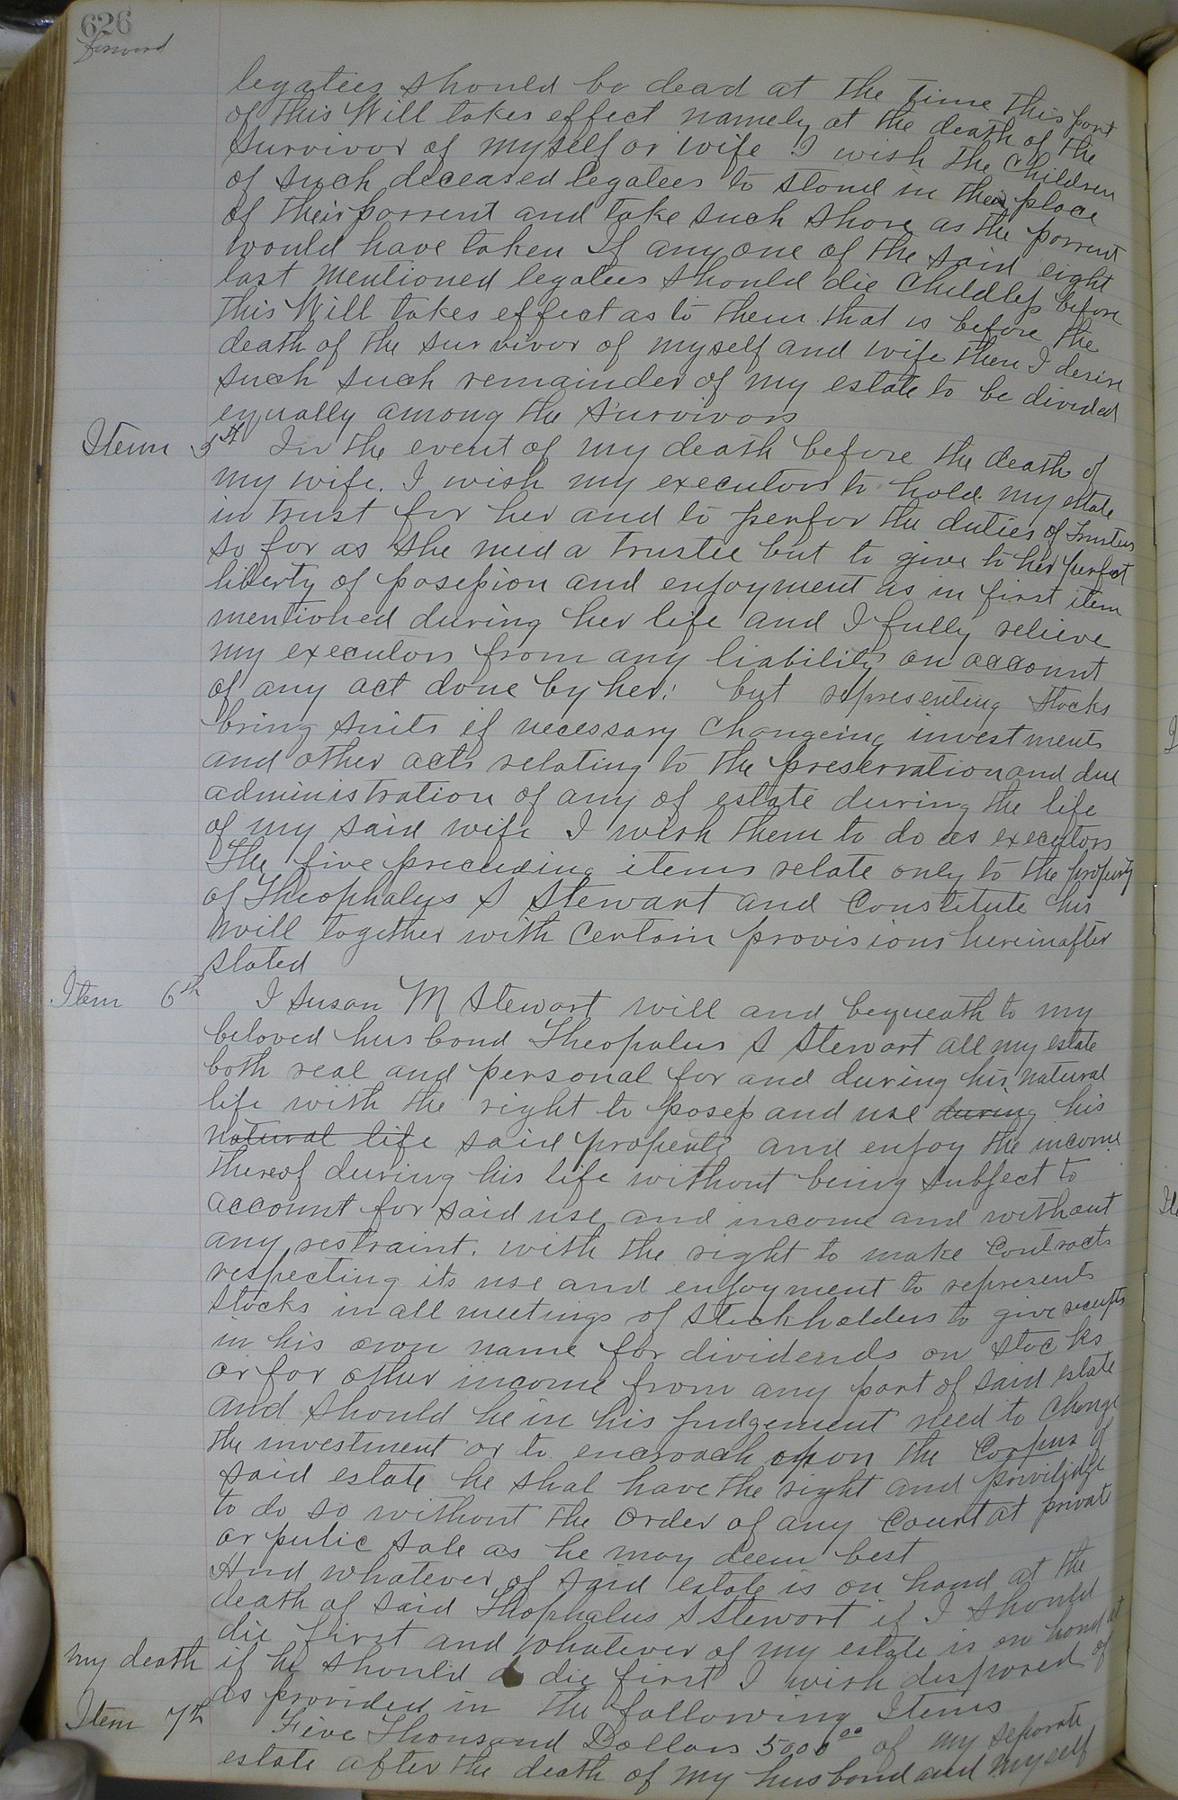 626
forward
legatees should be dead at the time this part
of this Will takes effect namely at the death of the
survivor of myself or wife I wish the Children
of such deceased legatees to stand in their place
of their parrent and take such share as the parrent
would have taken If any one of the said eight
last mentioned legatees should die Childless before
this Will takes effect as to them that is before the
death of the survivor of myself and wife then I desire
such such remainder of my estate to be divided
equally among the survivors
Item 5th In the event of my death before the death of
my wife. I wish my executors to hold my estate
in trust for her and to perfor the duties of Trustees
so far as she need a trustee but to give to her perfect
liberty of possession and enjoyment as in first item
mentioned during her life and I fully relieve
my executors from any liability on account
of any act done by her: but representing stocks
bring suits if necessary Changeing investments
and other acts relating to the preservation and due
administration of any of estate during the life
of my said wife I wish them to do as executors
The five preceeding items relate only to the property
of Theophalus S Stewart and Constitute his
Will together with Certain provisions hereinafter
stated
Item 6th I Susan M Stewart will and bequeath to my
beloved husband Theopalus S Stewart all my estate
both real and personal for and during his natural
life with the right to posess and use during his
natural life said property and enjoy the income
thereof during his life without being subject to
account for said use and income and without
any restraint. with the right to make Contracts
respecting its use and enjoyment to represent
stocks in all meetings of stockholders to give receipts
in his own name for dividends on stocks
or for other income from any part of said estate
and should he in his judgement need to Change
the investment or to encroach upon the Corpus of
said estate he shal have the right and privilidge
to do so without the order of any Court at private
or pulic sale as he may deem best
And whatever of said estate is on hand at the
death of said Theophalus S Stewart if I should
die first and whatever of my estate is on hand at
my death if he should die first I wish disposed of
as provided in the following Items
Item 7th Five Thousand Dollars 5000.00 of my separate
estate after the death of my husband and myself